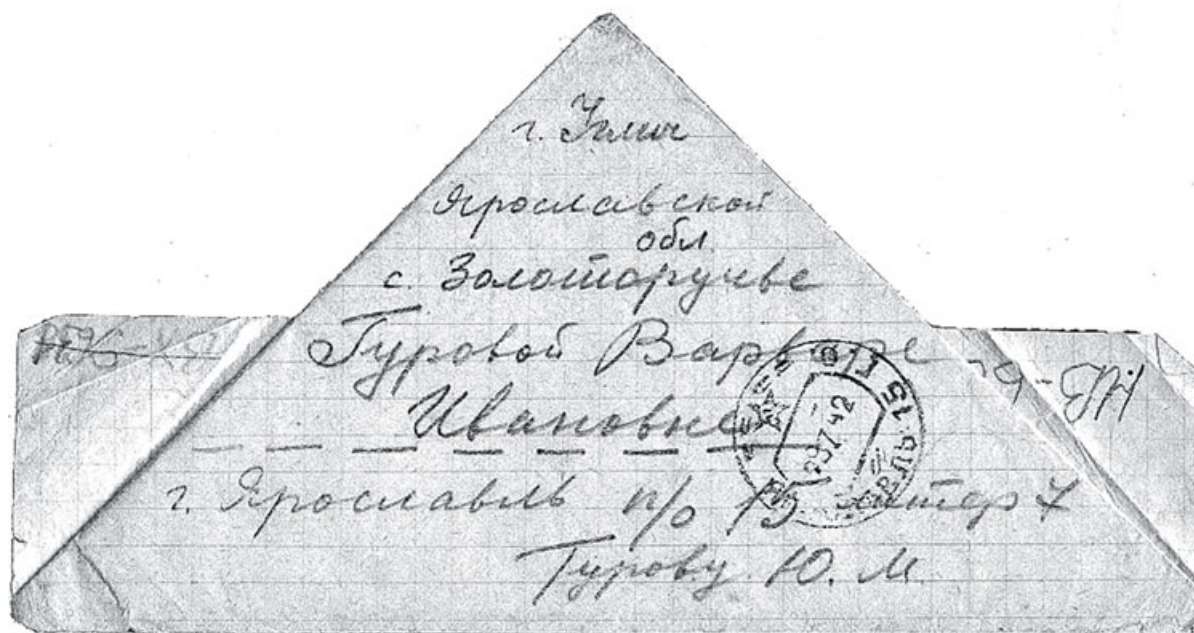 г. Углич
Ярославской
обл.
с. Золоторучье
Гуровой Варваре
Ивановне
г. Ярославль п/о 15 литер
Гурову Ю. М.
ЯРОСЛАВЛЬ 15
7 42